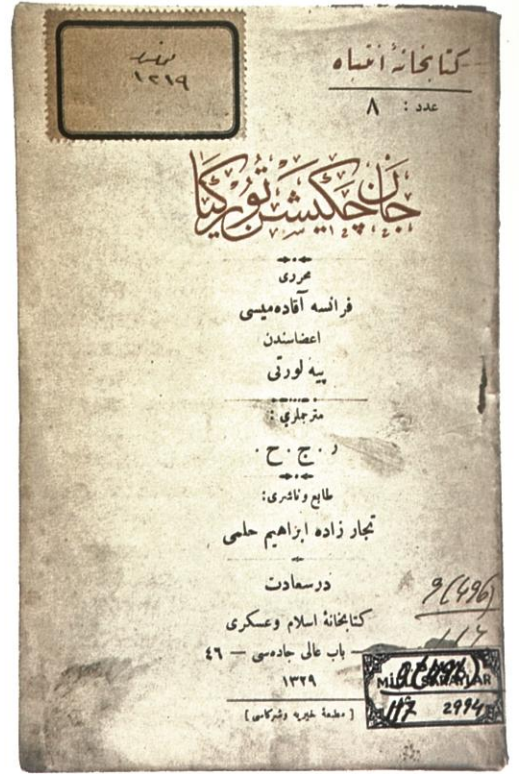 كتابخانهٔ انتباه
عدد : ٨
١٢١٩
جان چكیشن توركیا
محرری
فرانسه آقاده‌میسی
اعضاسندن
پیه‌ لورتی
مترجملری :
ر . ج . ح .
طابع و ناشری :
تجار زاده ابراهیم حلمی
درسعادت
كتابخانهٔ اسلام وعسكری
— باب عالی جاده‌سی — ٤٦
١٣٢٩
[ مطبعهٔ خیریه وشركاسی ]
9(496)
MİLLİ SARAYLAR
117 2994